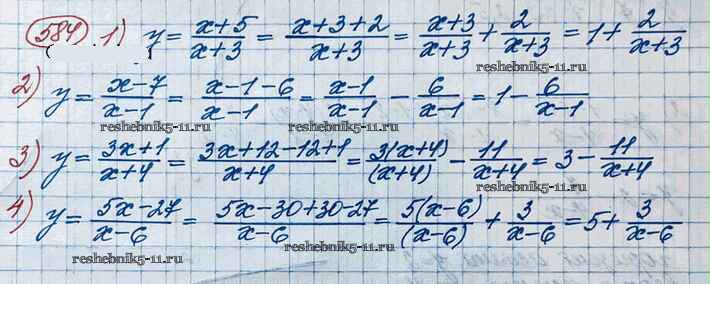 584 1) y = (x+5)/(x+3) = (x+3+2)/(x+3) = (x+3)/(x+3) + 2/(x+3) = 1 + 2/(x+3)
reshebnik5-11.ru
2) y = (x-7)/(x-1) = (x-1-6)/(x-1) = (x-1)/(x-1) - 6/(x-1) = 1 - 6/(x-1)
reshebnik5-11.ru reshebnik5-11.ru reshebnik5-11.ru
3) y = (3x+1)/(x+4) = (3x+12-12+1)/(x+4) = 3(x+4)/(x+4) - 11/(x+4) = 3 - 11/(x+4)
reshebnik5-11.ru
4) y = (5x-27)/(x-6) = (5x-30+30-27)/(x-6) = 5(x-6)/(x-6) + 3/(x-6) = 5 + 3/(x-6)
reshebnik5-11.ru reshebnik5-11.ru reshebnik5-11.ru